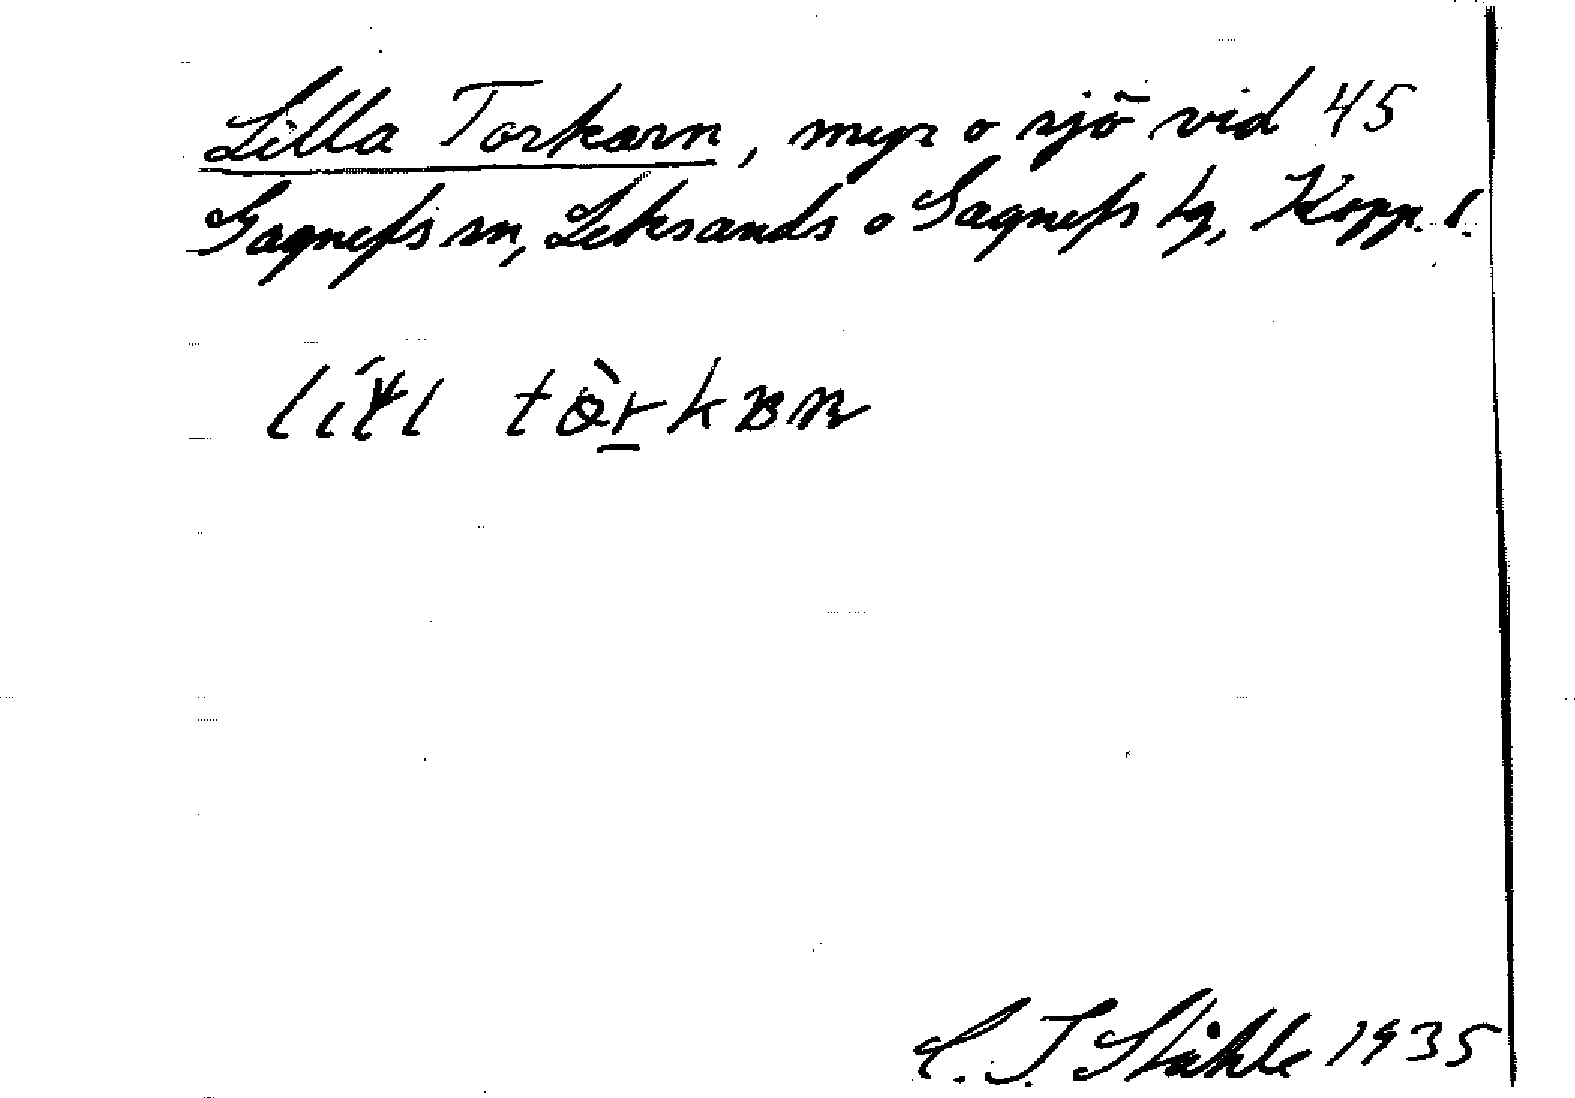 Lilla Torkarn, myr o sjö vid 45
Gagnefs sn, Leksands o Gagnefs tg, Kopp. l.
C. I. Ståhle 1935